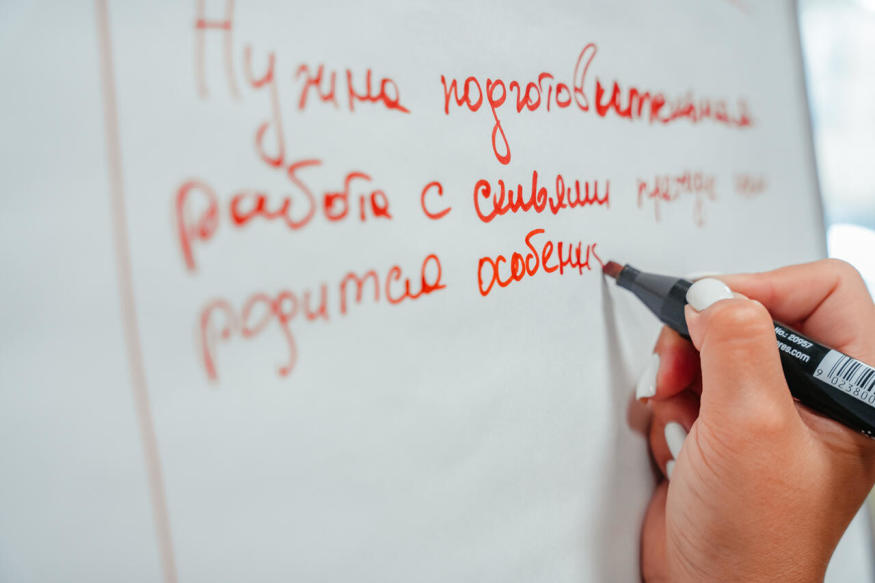 Нужна подготовительная
работа с семьями прежде чем
родится особенн
No.: 20957
res.com
9 023800